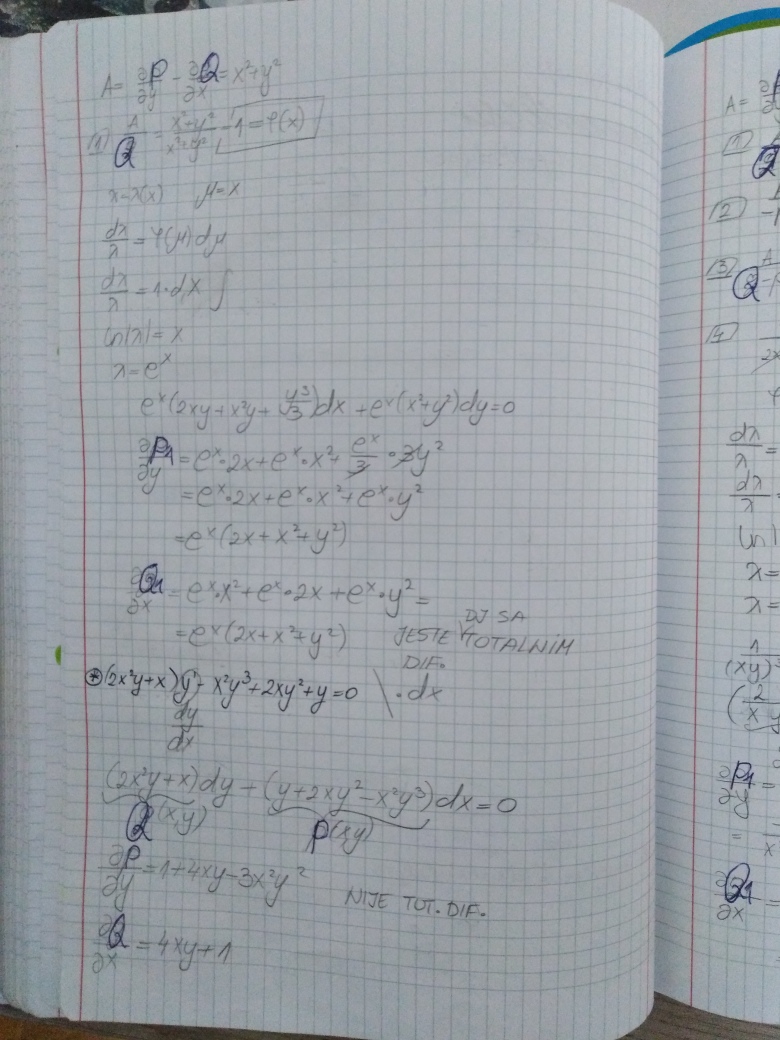 A = ∂P/∂y - ∂Q/∂x = x²+y²
(1) A/Q = x²+y²/x²+y² = 1 = φ(x)
λ=λ(x) μ=x
dλ/λ = φ(μ)dμ
dλ/λ = 1·dx ∫
ln|λ| = x
λ = e^x
e^x(2xy+x²y+y³/3)dx + e^x(x²+y²)dy=0
∂P1/∂y = e^x·2x+e^x·x²+e^x/3·3y²
= e^x·2x+e^x·x²+e^x·y²
= e^x(2x+x²+y²)
∂Q1/∂x = e^x·x²+e^x·2x+e^x·y² =
= e^x(2x+x²+y²) JESTE DJ SA TOTALNIM
DIF.
(2x²y+x)y' - x²y³+2xy²+y=0 \ ·dx
dy/dx
(2x²y+x)dy + (y+2xy²-x²y³)dx=0
Q(xy) P(xy)
∂P/∂y = 1+4xy-3x²y²
NIJE TOT. DIF.
∂Q/∂x = 4xy+1
A =
(1)
Q
(2)
(3)
Q
(4)
dλ/λ =
dλ/λ
λ=
λ=
∂P1/∂y =
∂Q1/∂x =